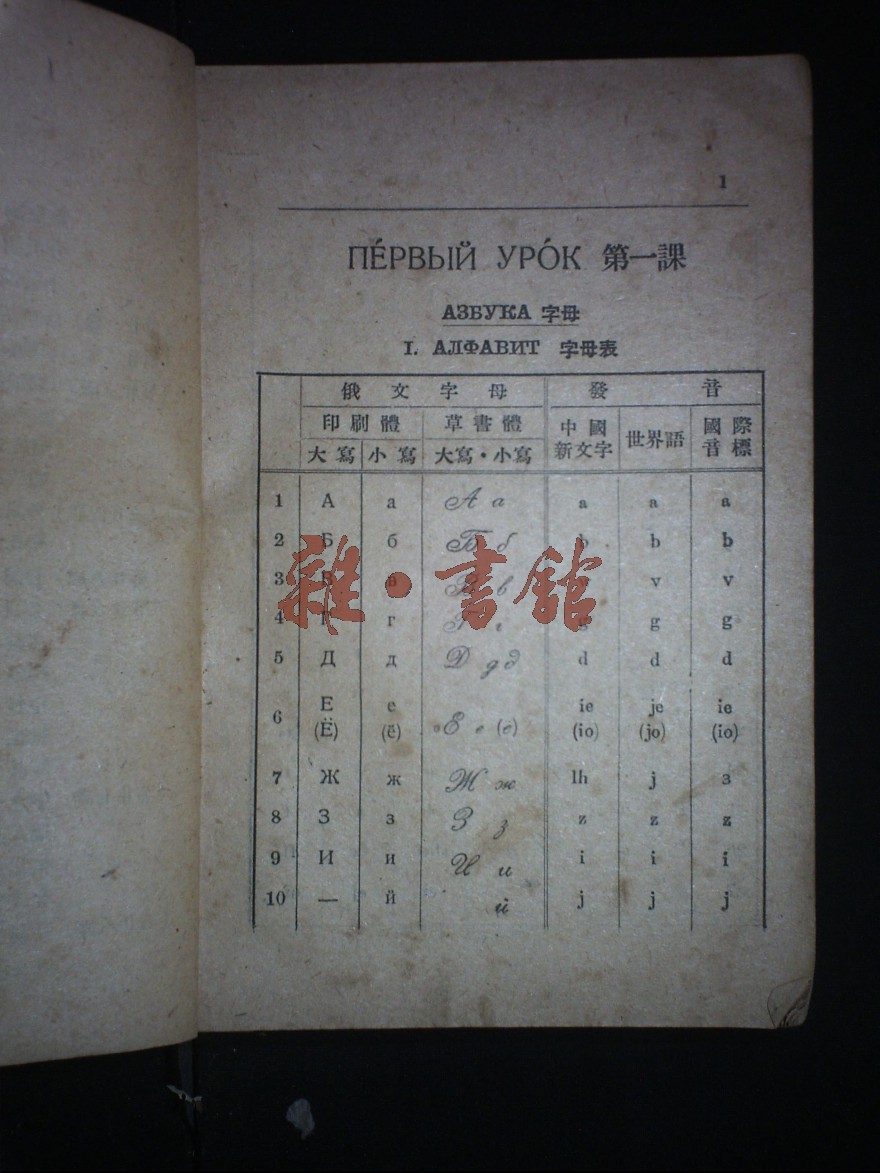 1
ПЕ́РВЫЙ УРО́К 第一課
АЗБУКА 字母
I. АЛФАВИТ 字母表
俄文字母 發音
印刷體 草書體 中國新文字 世界語 國際音標
大寫 小寫 大寫·小寫
1 А а А а a a a
2 Б б Б б b b b
3 В в В в v v
4 Г г Г г g g g
5 Д д Д д д d d d
6 Е е Е е ie je ie
(Ё) (ё) (е) (io) (jo) (io)
7 Ж ж Ж ж lh j з
8 З з З з z z z
9 И и И и i i i
10 — й й j j j
雜·書館